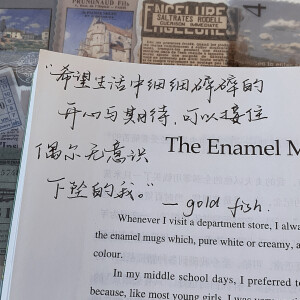 PRUNDNAUD FILS
ENGELURE
SALTRATES RODELL
GUERISON IMMEDIATE
4
“希望生活中细细碎碎的
开心与期待，可以接住
偶尔无意识
下坠的我。”
— gold fish.
The Enamel M
Whenever I visit a department store, I alwa
the enamel mugs which, pure white or creamy, a
colour.
In my middle school days, I preferred to
because, like most young girls, I was very